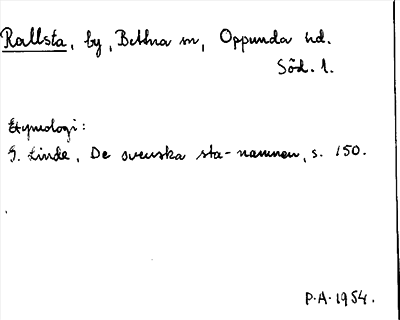 Rallsta, by, Bettna sn, Oppunda hd.
Söd. l.
Etymologi:
G. Linde, De svenska sta-namnen, s. 150.
P.A. 1954.